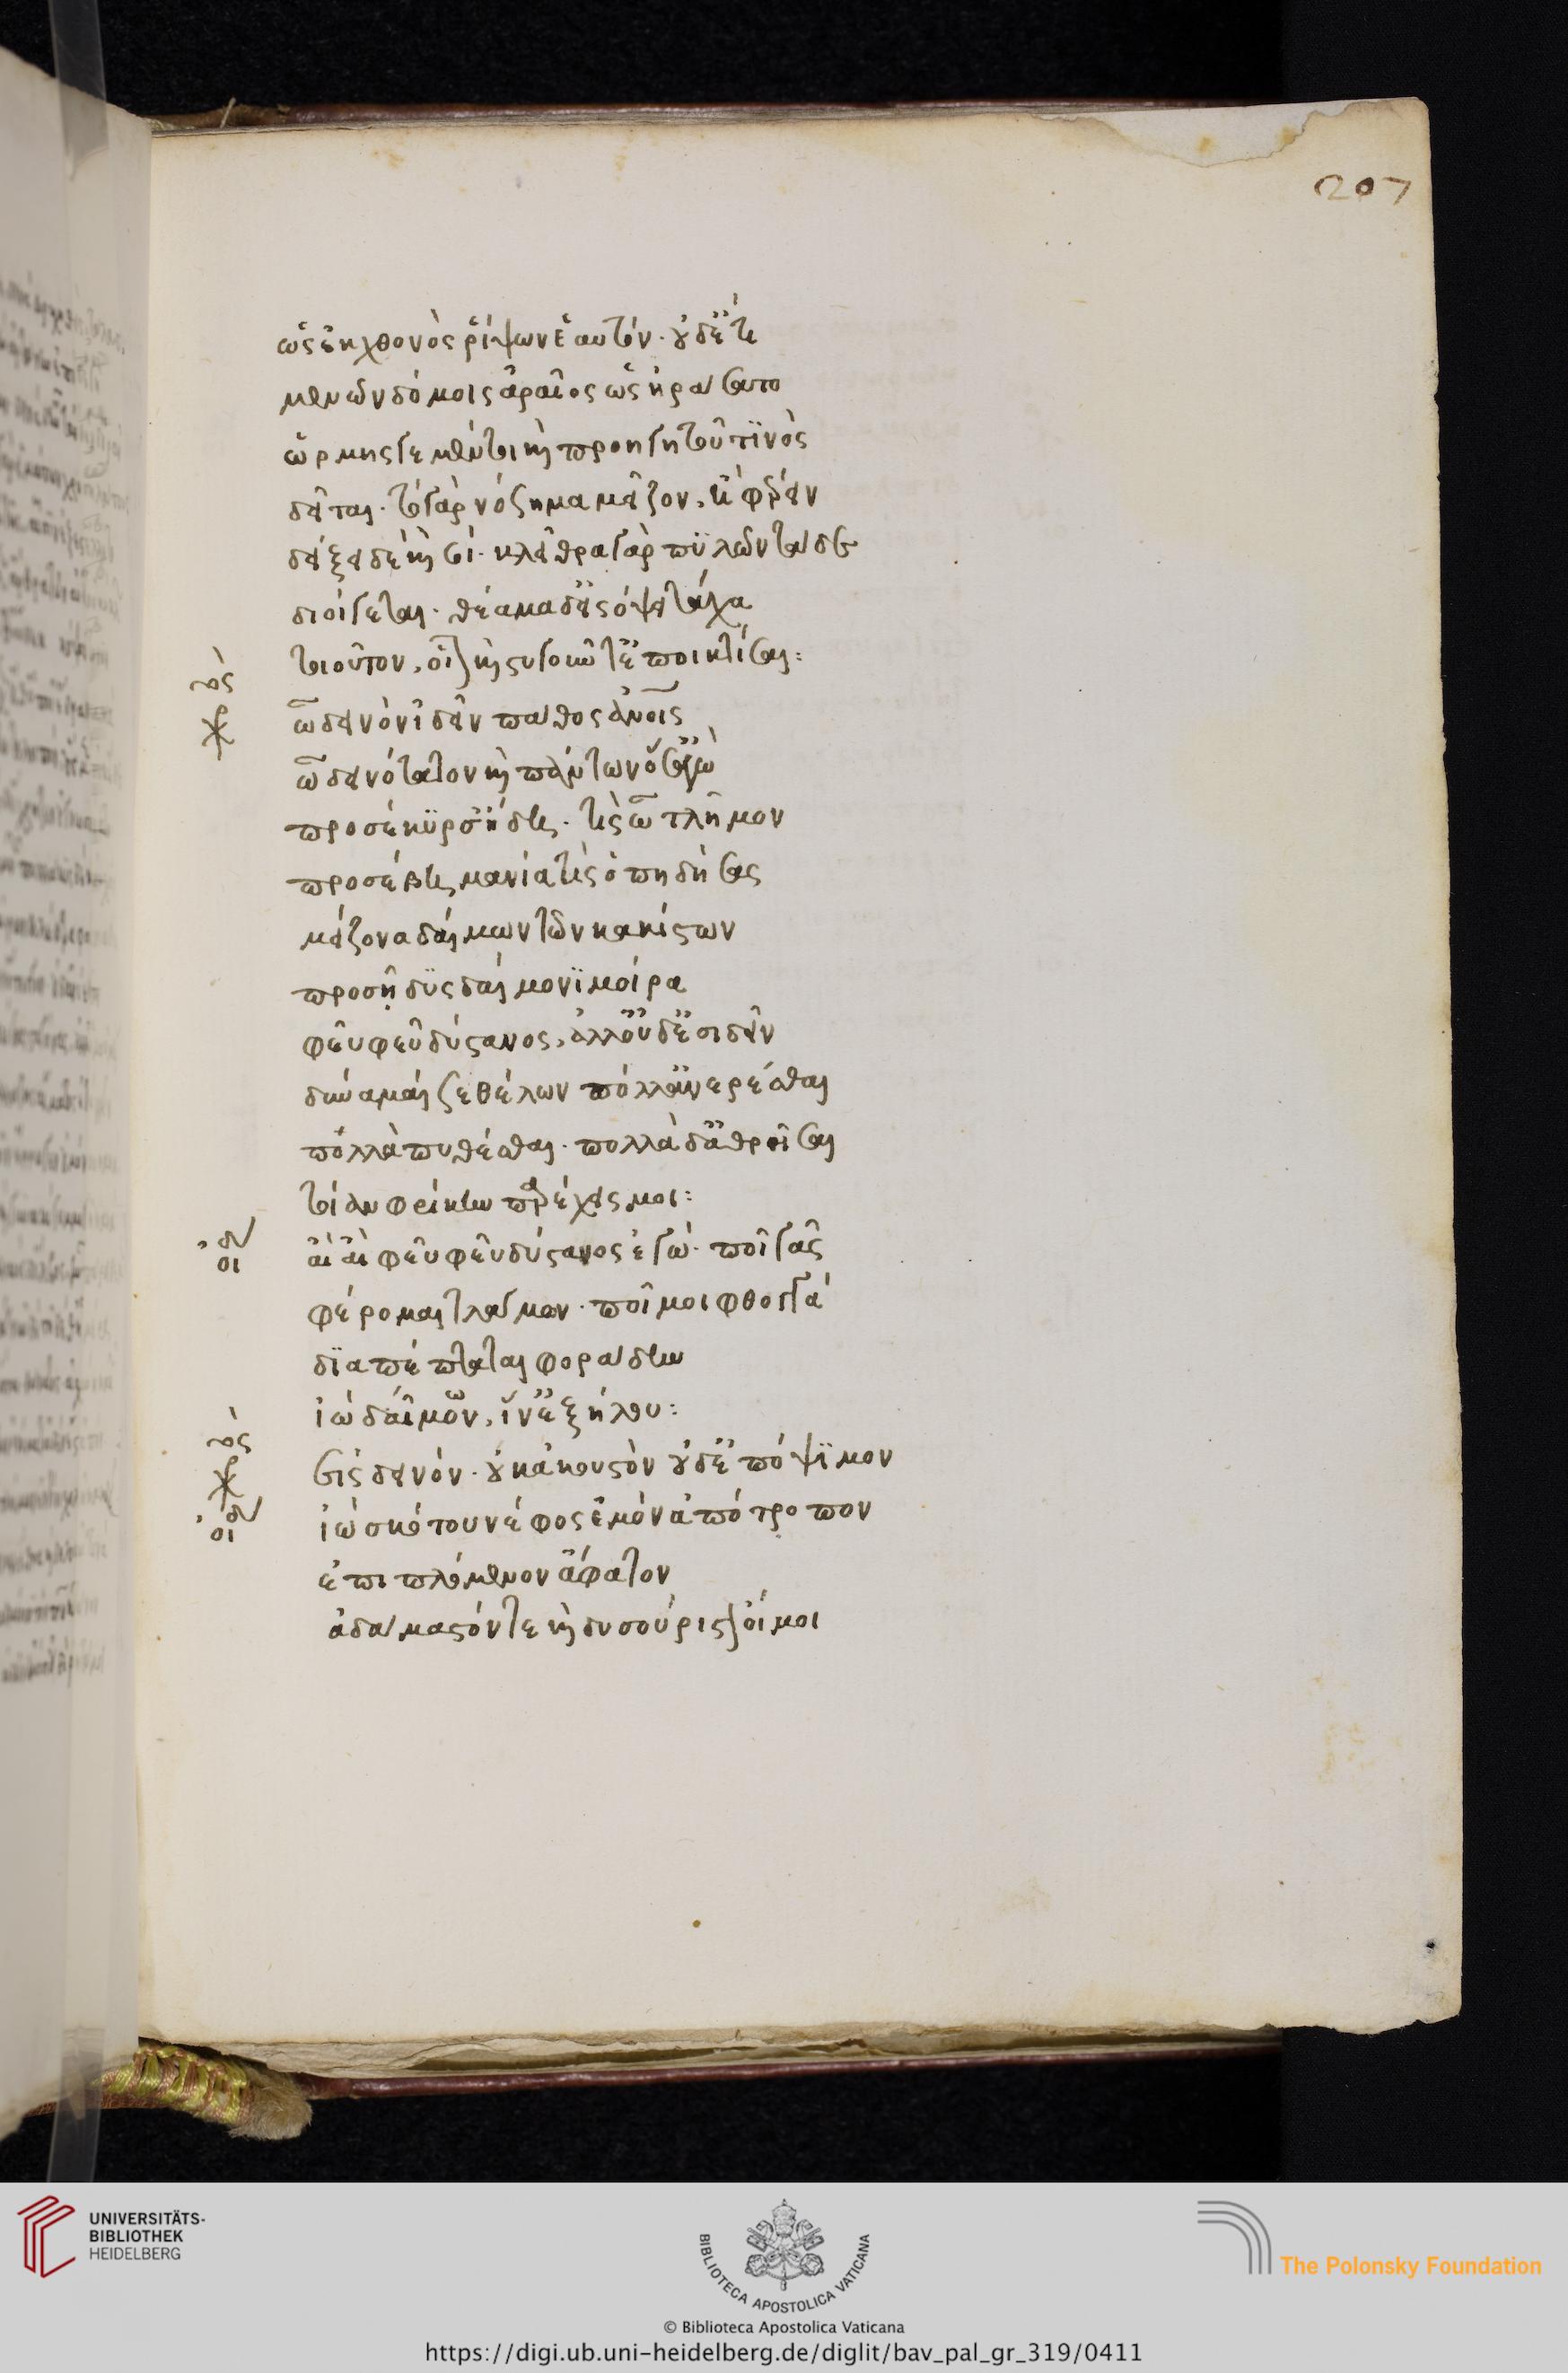 207
ὡς ἐκ χθονὸς ῥίψων ἑαυτόν. οὐδ' ἔτι
μενῶν δόμοις ἀραῖος ὡς ἠράσατο
ὥρμης γε μέντοι καὶ προηγητοῦ τινὸς
δεῖται. τὸ γὰρ νόσημα μεῖζον, ἢ φέρειν
δείξει δὲ καὶ σοί. κλεῖθρα γὰρ πυλῶν τάδε
διοίγεται. θέαμα δ' εἰσόψει τάχα
τοιοῦτον, οἷον καὶ στυγοῦντ' ἐποικτίσαι:
χος ὦ δεινὸν ἰδεῖν πάθος ἀνοις
ὦ δεινότατον καὶ πάντων ὅσ' ἐγὼ
προσέκυρσ' ἤδη. τὶς ὦ τλῆμον
προσέβη μανία τὶς ὁ πηδήσας
μείζονα δαίμων τῶν κακίστων
προσῆ δυσδαίμονι μοίρα
φεῦ φεῦ δύστανος, ἀλλ' οὐδ' ἐσιδεῖν
δύναμαί σε θέλων πόλλ' ἀνερέσθαι
πόλλὰ πυθέσθαι. πολλὰ δ' ἀθροῖσαι
τοίαν φρίκην παρέχεις μοι:
οιδ αἲ αἲ φεῦ φεῦ δύστανος ἐγώ. ποῖ γᾶς
φέρομαι τλάμων. ποῖ μοι φθογγά
διαπέπταται φοράδην
ἰὼ δαῖμον, ἵν' ἐξήλου:
χος εἰς δεινόν. οὐκ ἀκουστὸν οὐδ' ἐπόψιμον
οιδ ἰὼ σκότου νέφος ἐμὸν ἀπότροπον
ἐπιπλόμενον ἄφατον
ἀδάμαστόν τε καὶ δυσούριστον οἴμοι
UNIVERSITÄTS-
BIBLIOTHEK
HEIDELBERG
BIBLIOTECA APOSTOLICA VATICANA
The Polonsky Foundation
© Biblioteca Apostolica Vaticana
https://digi.ub.uni-heidelberg.de/diglit/bav_pal_gr_319/0411